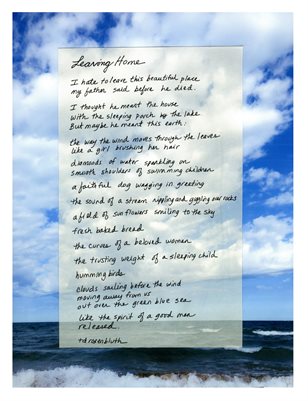 Leaving Home
I hate to leave this beautiful place
my father said before he died.
I thought he meant the house
with the sleeping porch by the lake
But maybe he meant this earth:
the way the wind moves through the leaves
like a girl brushing her hair
diamonds of water sparkling on
smooth shoulders of swimming children
a faithful dog wagging in greeting
the sound of a stream rippling and giggling over rocks
a field of sunflowers smiling to the sky
fresh baked bread
the curves of a beloved woman
the trusting weight of a sleeping child
hummingbirds
clouds sailing before the wind
moving away from us
out over the green blue sea
like the spirit of a good man
released.
rosenbluth